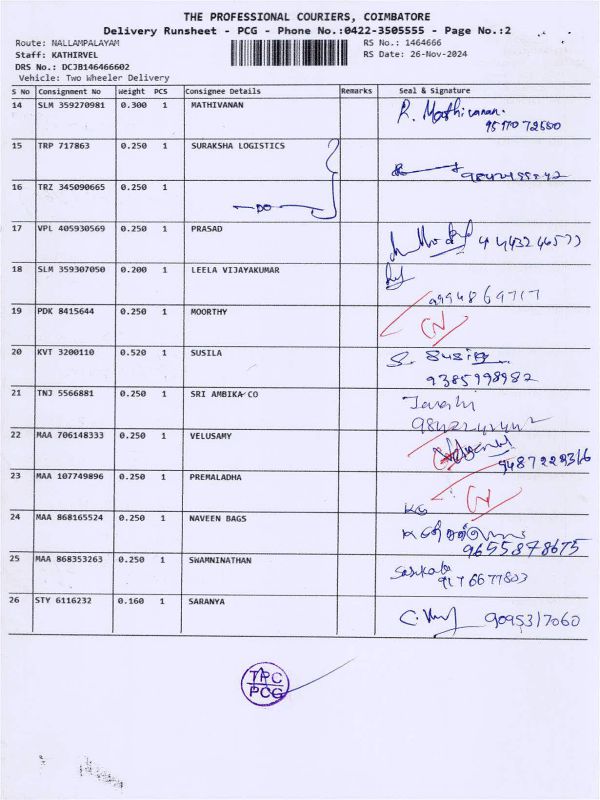 THE PROFESSIONAL COURIERS, COIMBATORE
Delivery Runsheet - PCG - Phone No.:0422-3505555 - Page No.:2
Route: NALLAMPALAYAM
RS No.: 1464666
Staff: KATHIRVEL
RS Date: 26-Nov-2024
DRS No.: DCJB146466602
Vehicle: Two Wheeler Delivery
S No Consignment No Weight PCS Consignee Details Remarks Seal & Signature
14 SLM 359270981 0.300 1 MATHIVANAN R. Mathivanan.
15 TRP 717863 0.250 1 SURAKSHA LOGISTICS
16 TRZ 345090665 0.250 1 DO
17 VPL 405930569 0.250 1 PRASAD
18 SLM 359307050 0.200 1 LEELA VIJAYAKUMAR
9994869717
19 PDK 8415644 0.250 1 MOORTHY
20 KVT 3200110 0.520 1 SUSILA S. Susila
9385998982
21 TNJ 5566881 0.250 1 SRI AMBIKA CO
22 MAA 706148333 0.250 1 VELUSAMY
9487229316
23 MAA 107749896 0.250 1 PREMALADHA
24 MAA 868165524 0.250 1 NAVEEN BAGS
9655878675
25 MAA 868353263 0.250 1 SWAMNINATHAN
9176677803
26 STY 6116232 0.160 1 SARANYA 9095317060
TPC
PCG